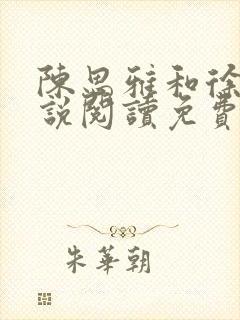 陳思雅和徐
說閱讀免費
朱華朝